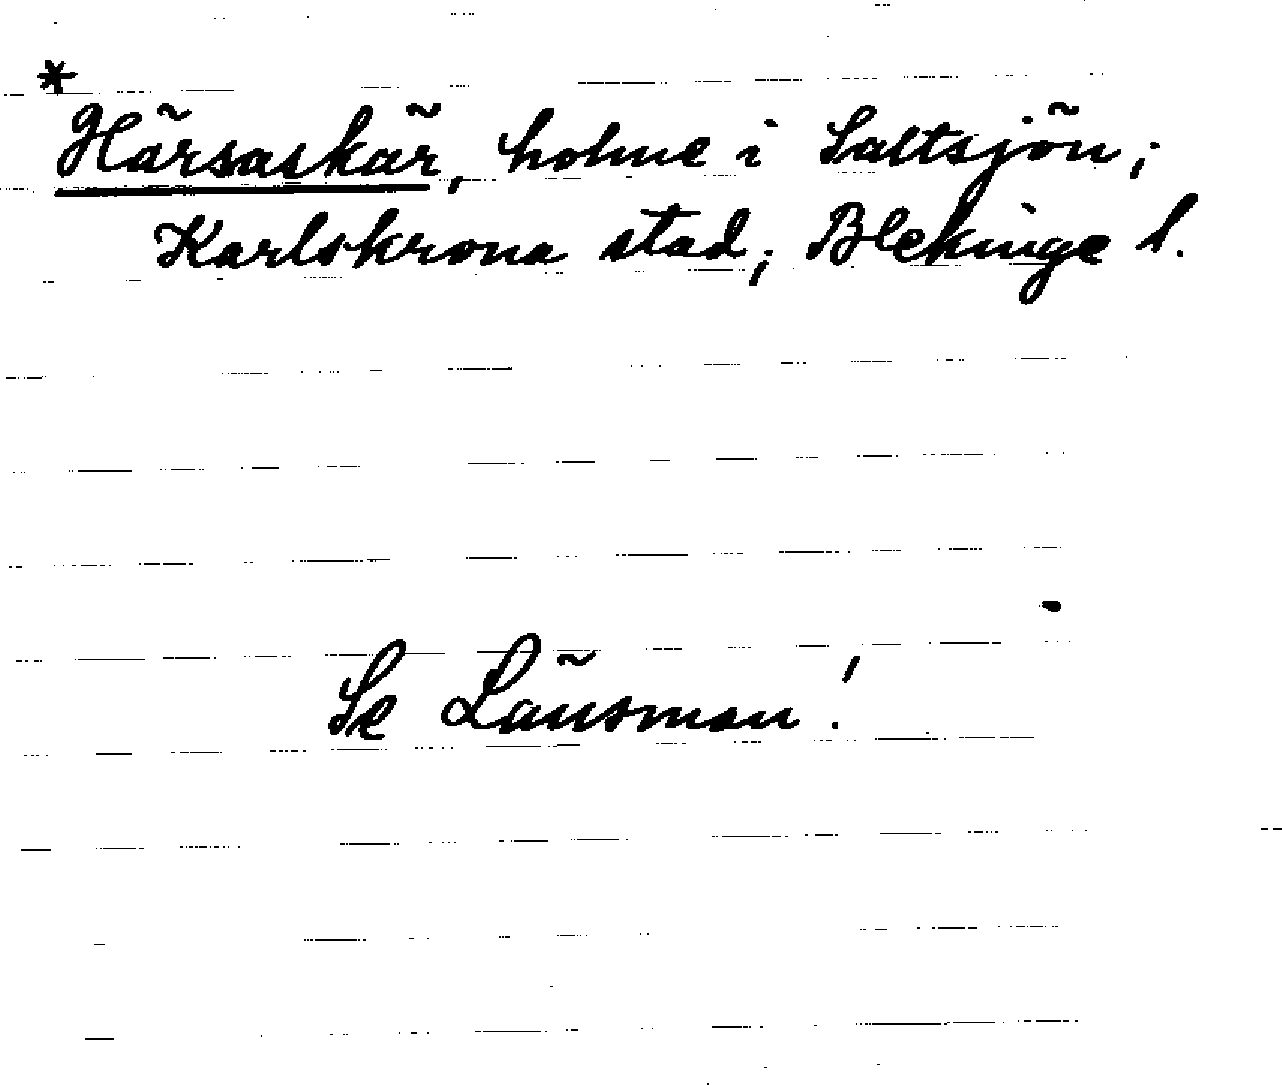 *
Härsaskär, holme i Saltsjön;
Karlskrona stad; Blekinge l.
Se Länsman!